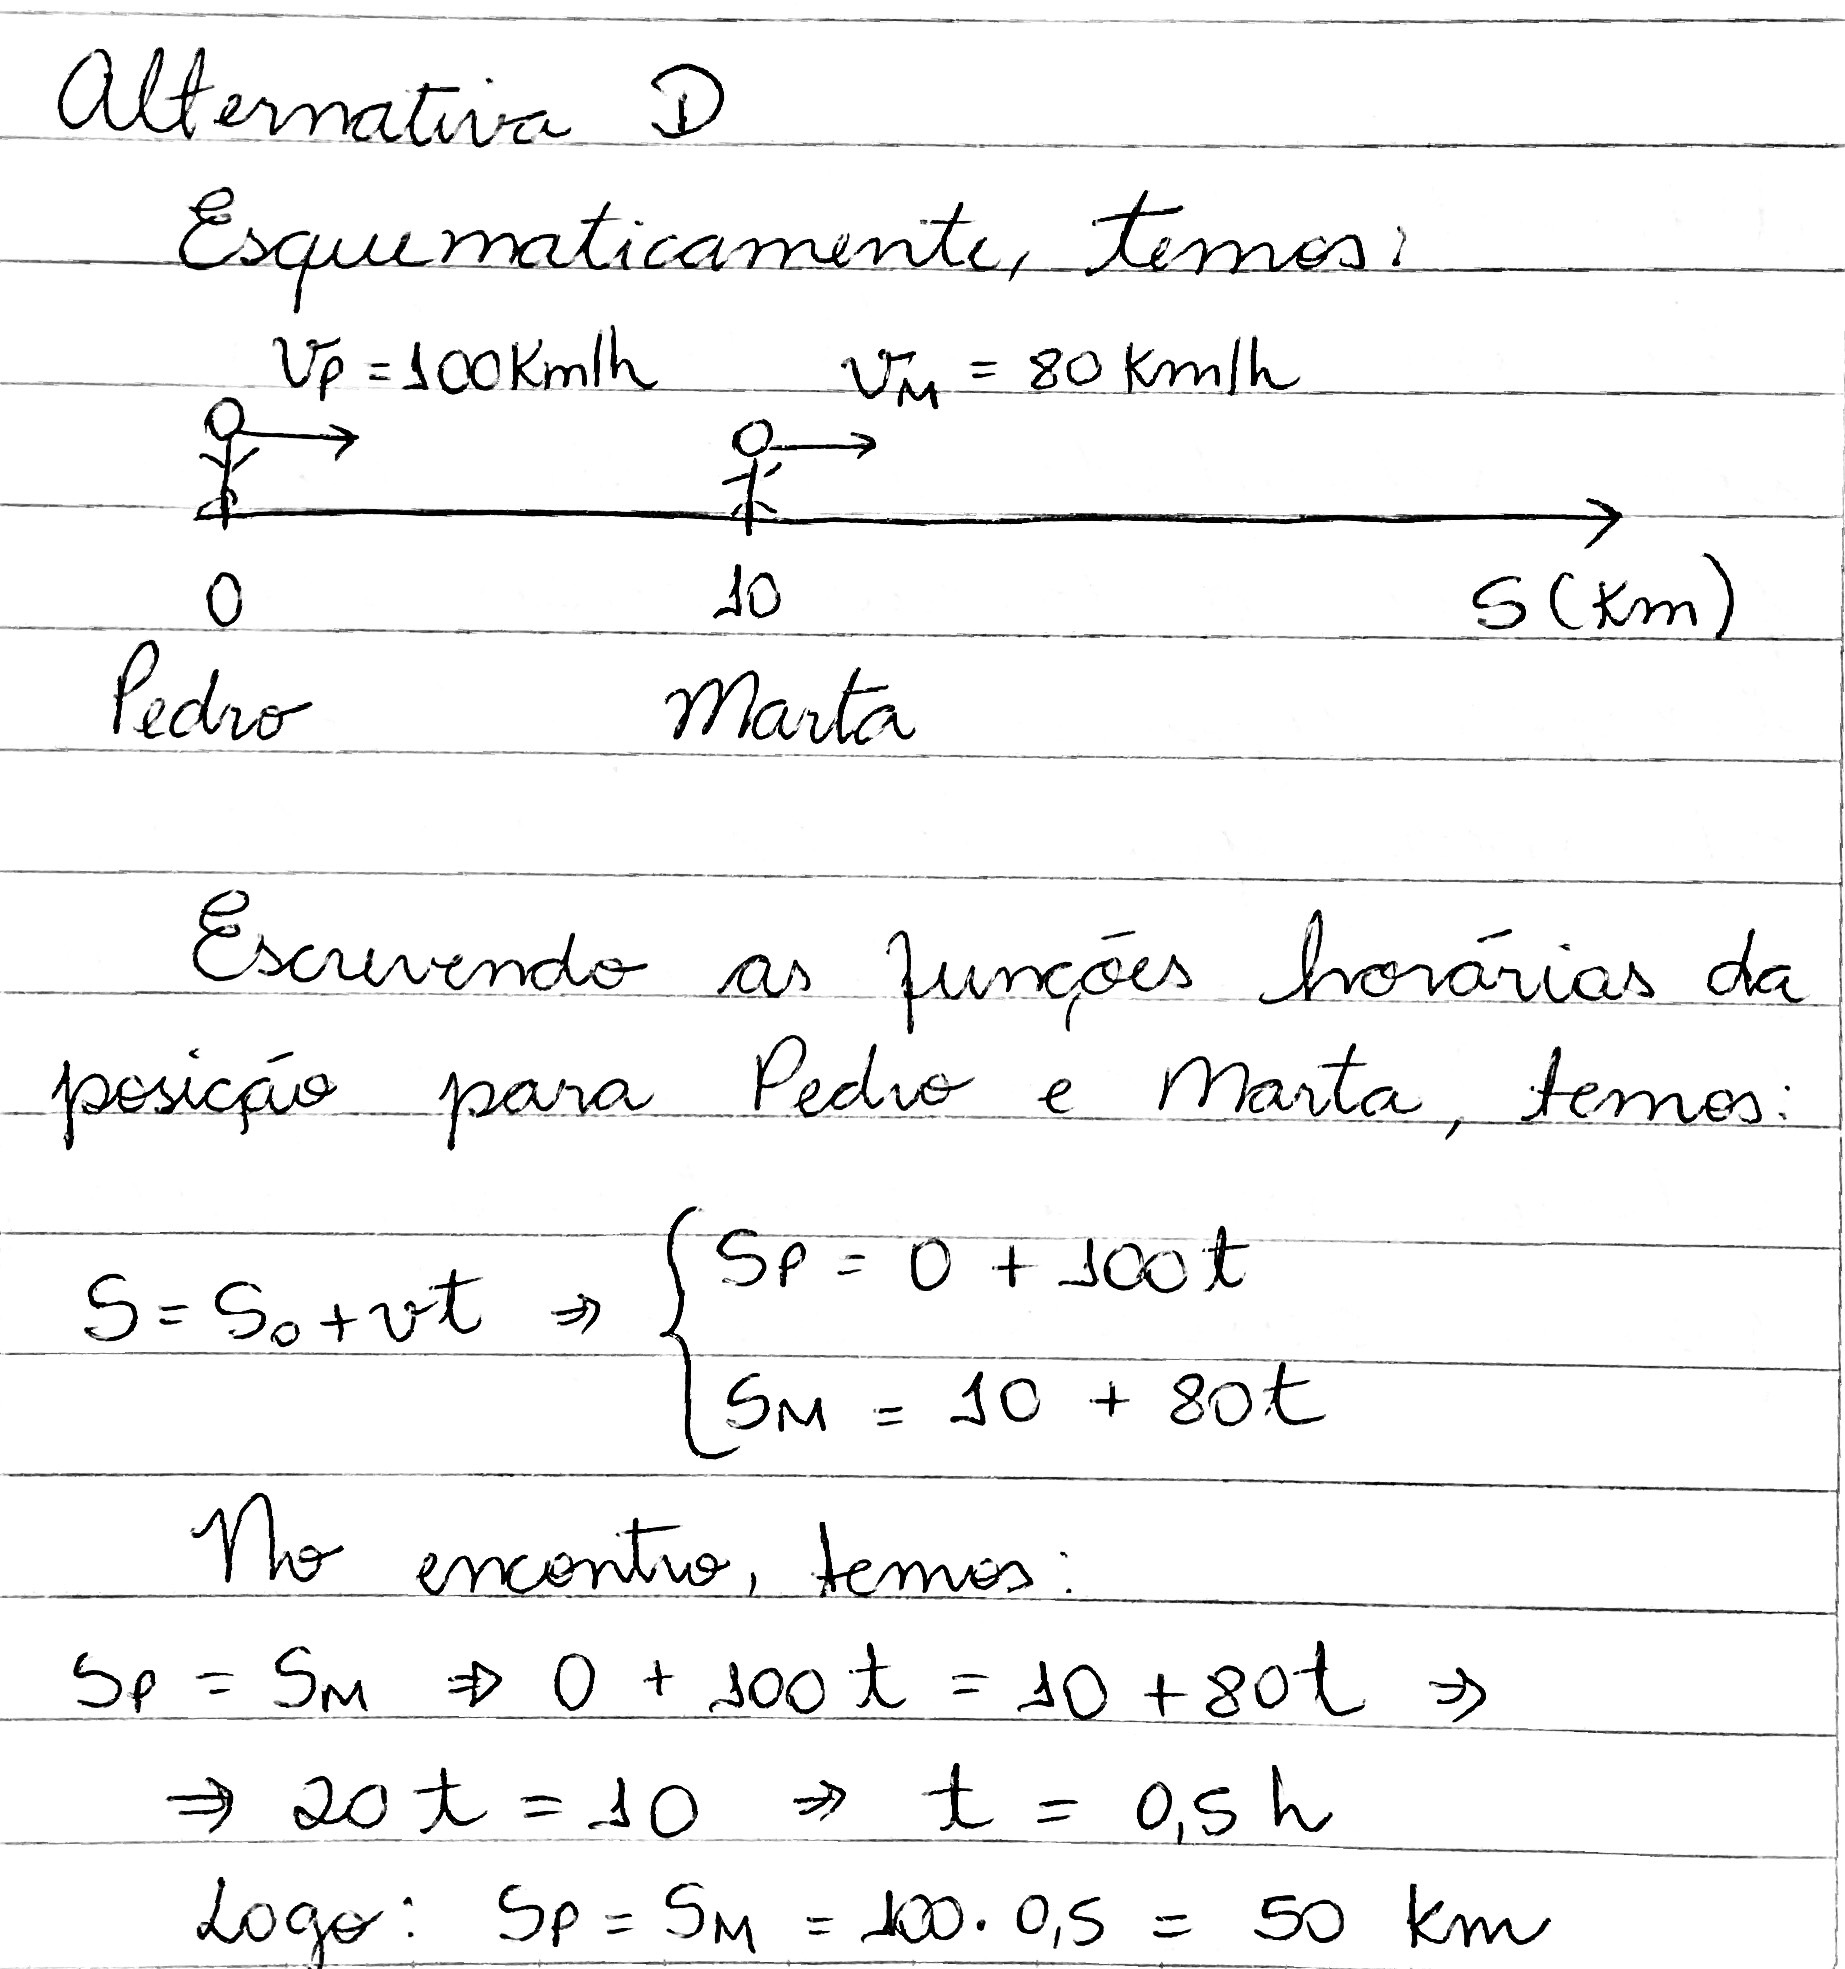 Alternativa D
Esquematicamente, temos:
Vp = 100 Km/h VM = 80 Km/h
0 10 S (Km)
Pedro Marta
Escrevendo as funções horárias da
posição para Pedro e Marta, temos:
Sp = 0 + 100t
S = S₀ + vt ⇒
SM = 10 + 80t
No encontro, temos:
Sp = SM ⇒ 0 + 100t = 10 + 80t ⇒
⇒ 20t = 10 ⇒ t = 0,5 h
Logo: Sp = SM = 100 · 0,5 = 50 km